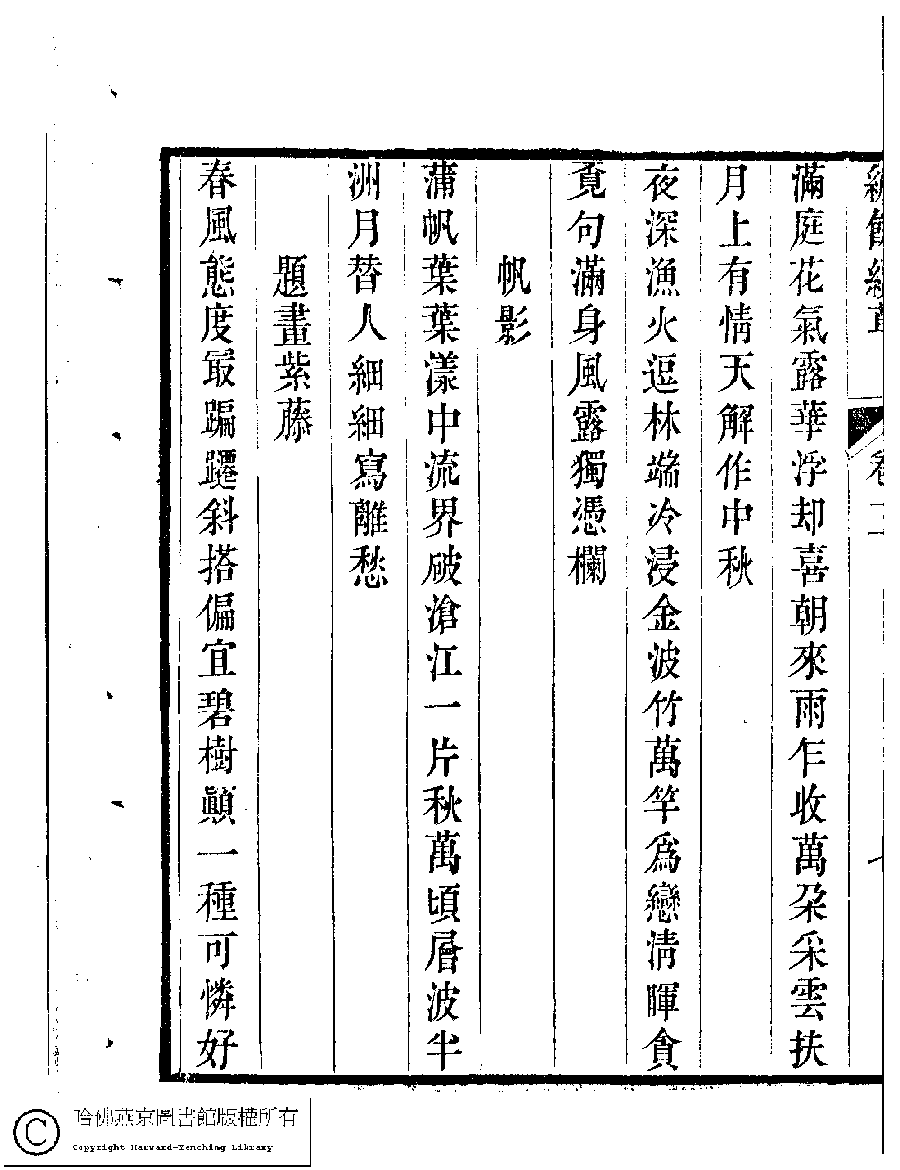 卷二
滿庭花氣露華浮却喜朝來雨乍收萬朶采雲扶
月上有情天解作中秋
夜深漁火逗林端冷浸金波竹萬竿爲戀淸暉貪
覔句滿身風露獨憑欄
帆影
蒲帆葉葉漾中流界破滄江一片秋萬頃層波半
洲月替人細細寫離愁
題畫紫藤
春風態度㝡蹁躚斜搭偏宜碧樹顚一種可憐好
哈佛燕京圖書館版權所有
Copyright Harvard-Yenching Library